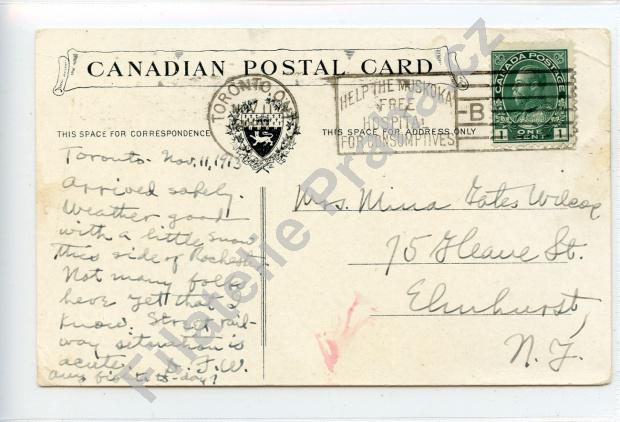 CANADIAN POSTAL CARD
TORONTO, ON
NOV 11
HELP THE MUSKOKA
FREE
HOSPITAL
FOR CONSUMPTIVES
B
CANADA POSTAGE
1 ONE CENT 1
THIS SPACE FOR CORRESPONDENCE
THIS SPACE FOR ADDRESS ONLY
Toronto - Nov. 11, 1913
Arrived safely.
Weather good
with a little snow
this side of Rochester
Not many folks
here yet that I
know. Street rail-
way situation is
acute. J.W.
Any to-day?
Mrs. Mina Yates Wilcox
75 St.
Elmhurst,
N.Y.
Filatelie Praha.cz